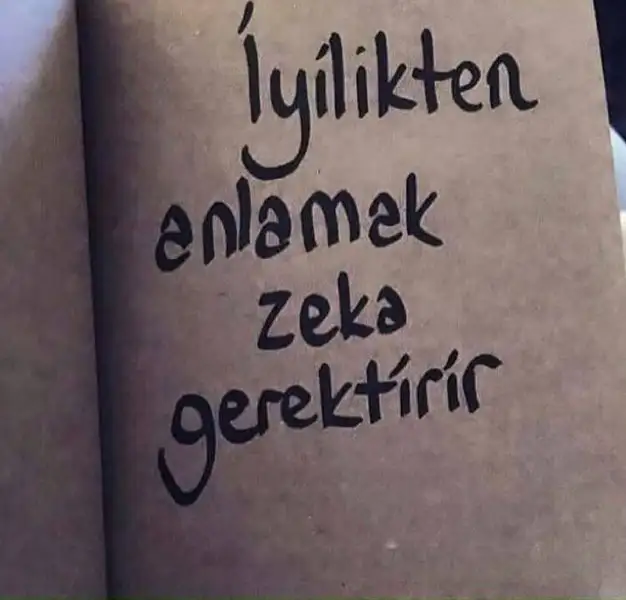 İyilikten
anlamak
zeka
gerektirir